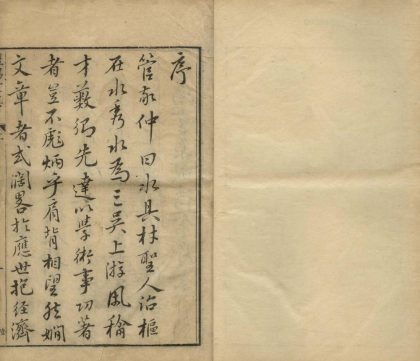 序
管敬仲曰水具材聖人治樞
在水秀水為三吳上游風稱
才藪鄉先達以學術事功著
者豈不彪炳乎肩背相望然嫻
文章者或濶畧於應世抱經濟